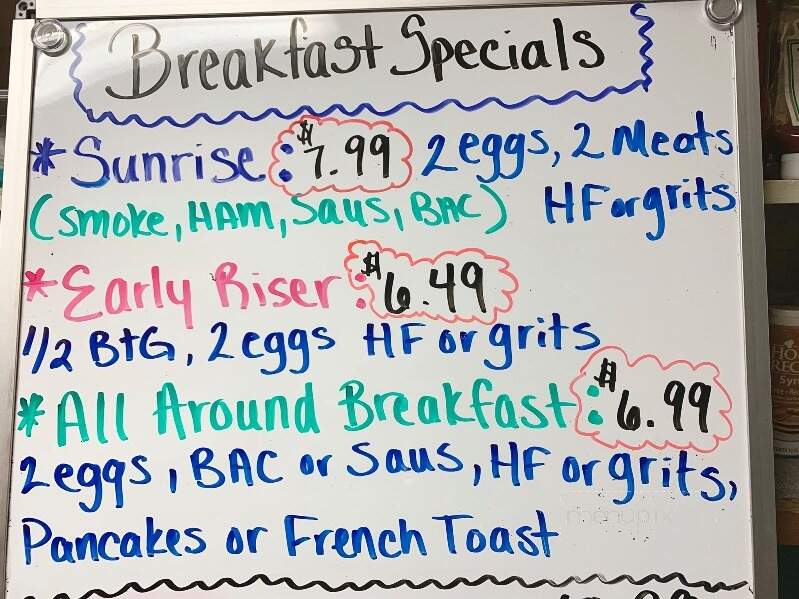 Breakfast Specials
*Sunrise: $7.99 2 eggs, 2 Meats
(smoke, HAM, Saus, BAC) HF or grits
*Early Riser: $6.49
1/2 BtG, 2 eggs HF or grits
*All Around Breakfast: $6.99
2 eggs, BAC or Saus, HF or grits,
Pancakes or French Toast